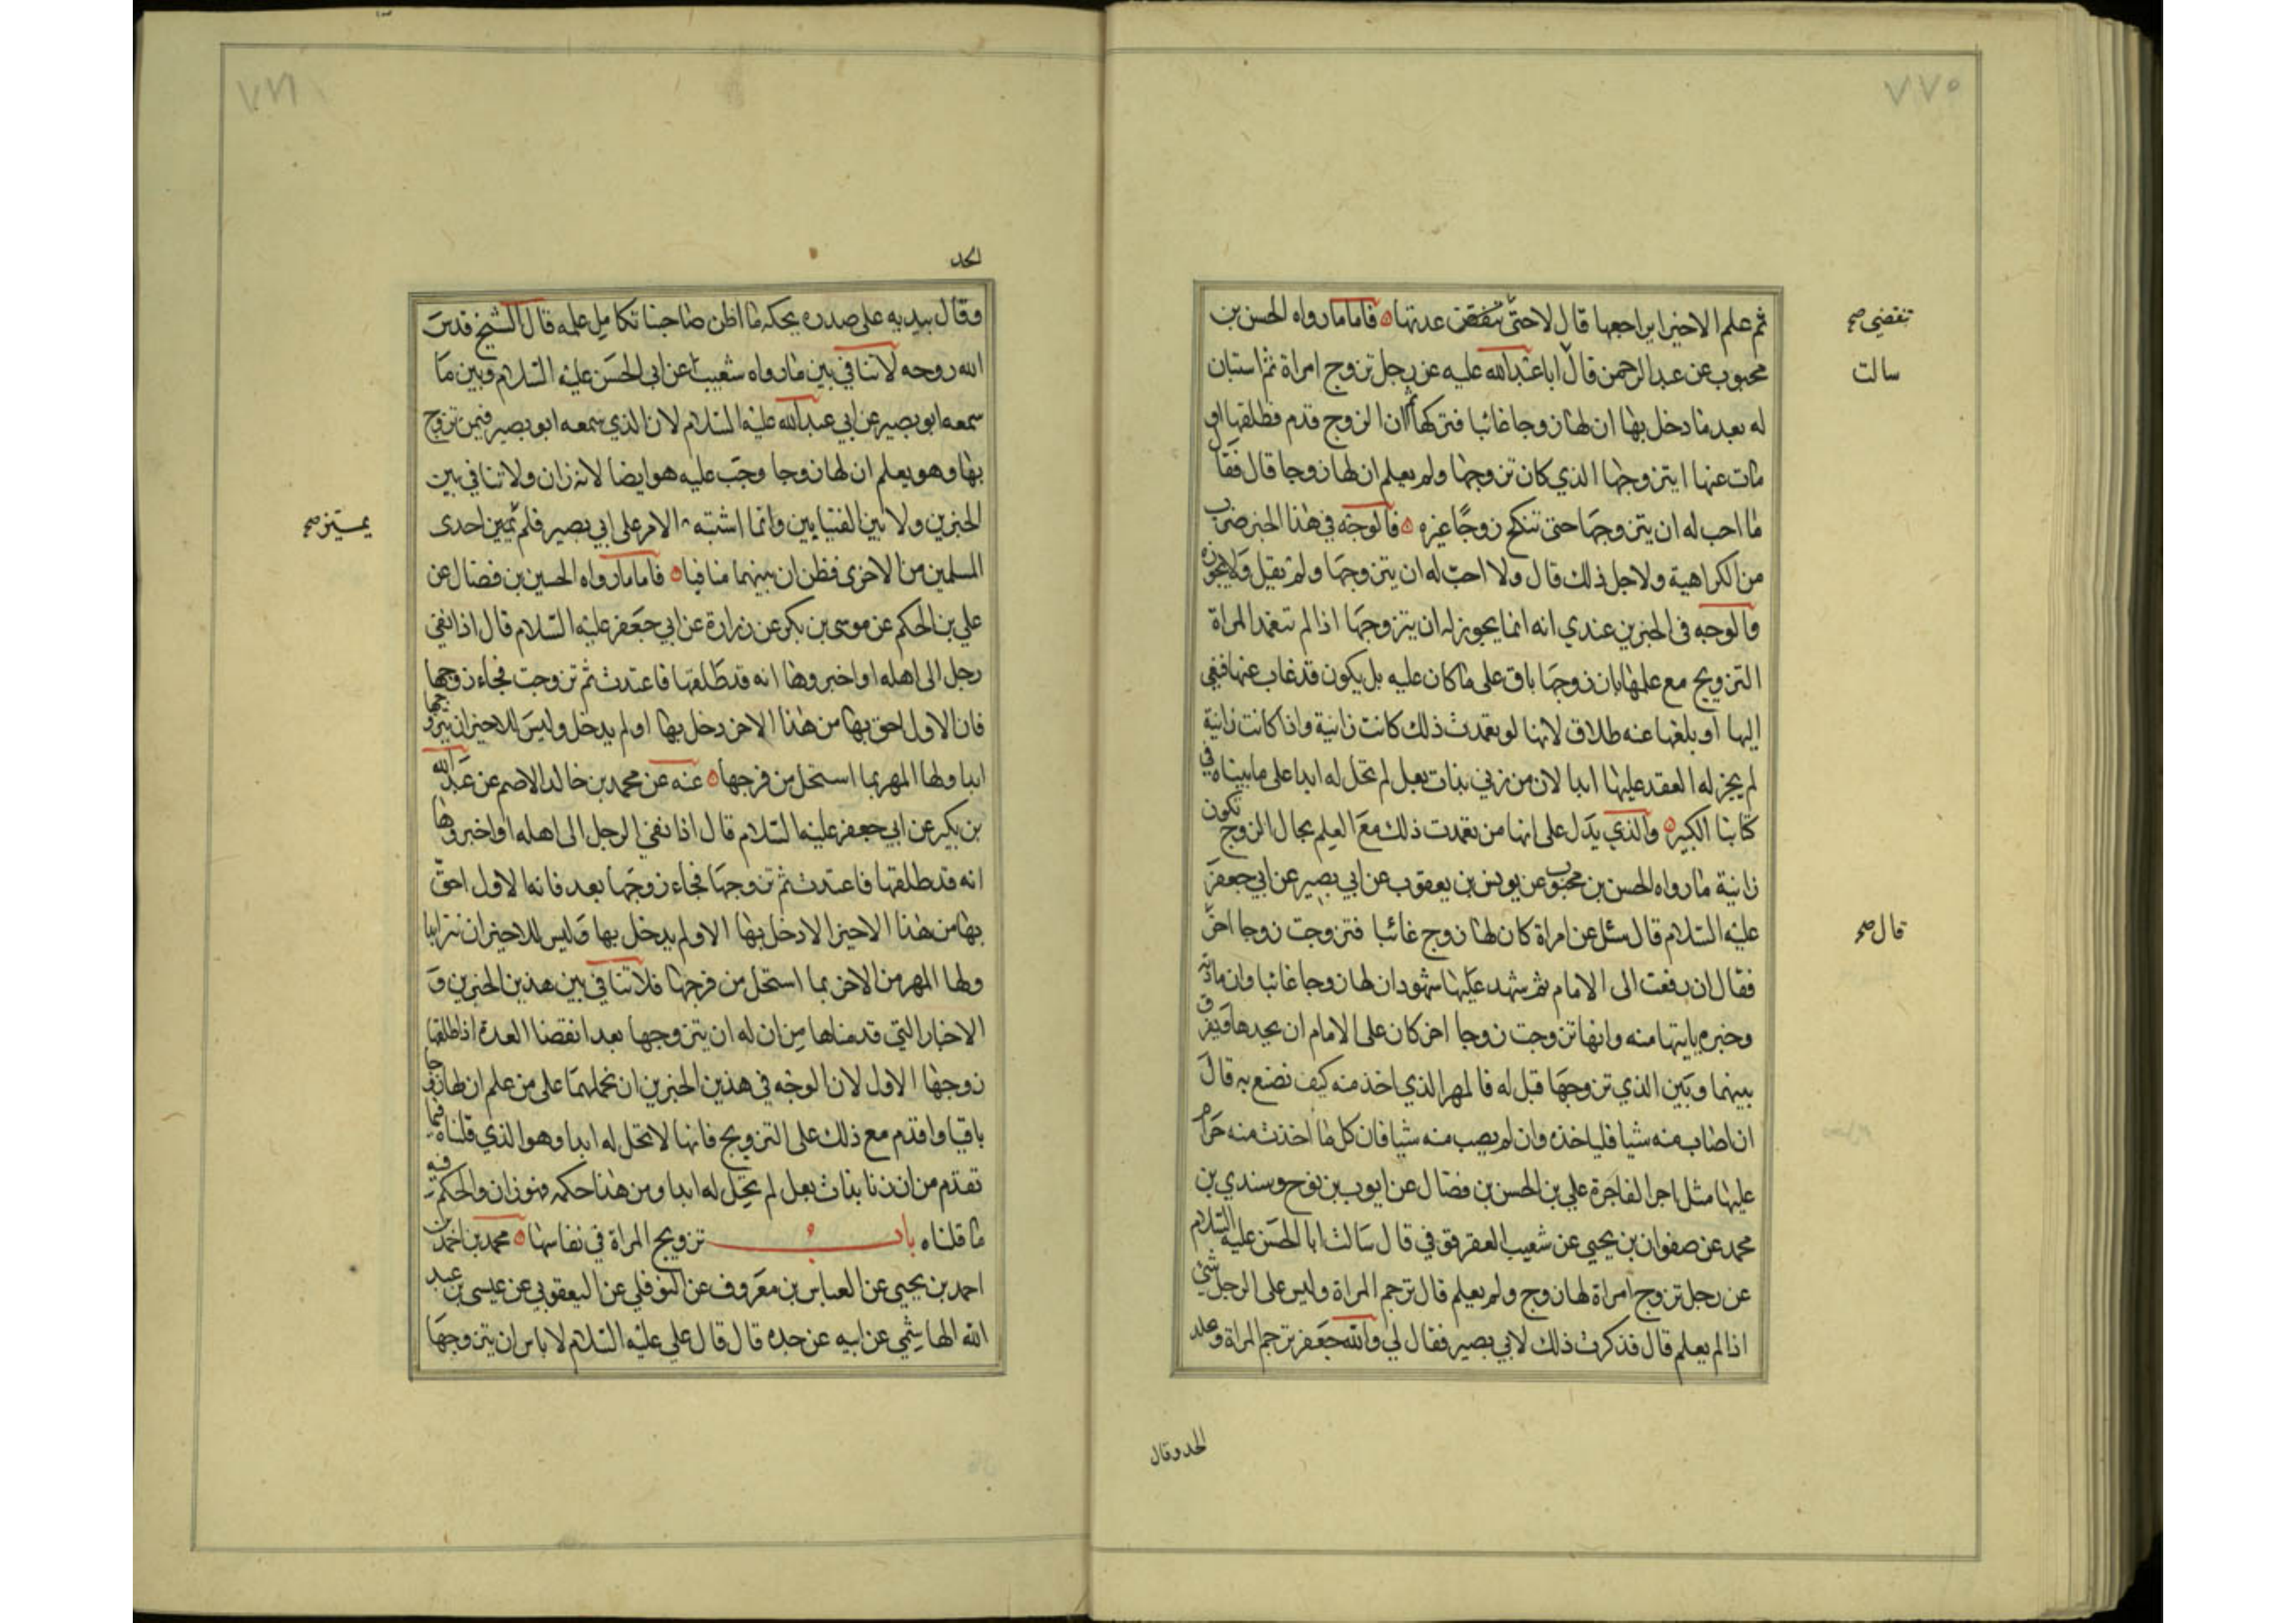 ٧٧٥
ثم علم الاخير ايراجعها قال لا حتى تنقضى عدتها فاما ما رواه الحسن بن
تنقضي صح
محبوب عن عبد الرحمن قال ابا عبد الله عليه عن رجل تزوج امراة ثم استبان
سالت
له بعد ما دخل بها ان لها زوجا غائبا فتركها ثم ان الزوج قدم فطلقها او
مات عنها ايتزوجها الذي كان تزوجها ولم يعلم ان لها زوجا قال فقا
ما احب له ان يتزوجها حتى تنكح زوجا غيره فالوجه في هذا الخبر ضرب
من الكراهية ولاجل ذلك قال ولا احب له ان يتزوجها ولم يقل ولا يجوز
فالوجه في الخبرين عندي انه انما يجوز له ان يتزوجها اذا لم تتعمد المراة
التزويج مع علمها بان زوجها باق على ما كان عليه بل يكون قد غاب عنها فنعي
اليها او بلغها عنه طلاق لانها لو تعمدت ذلك كانت زانية واذا كانت زانية
لم يجز له العقد عليها ابدا لان من زني بذات بعل لم تحل له ابدا على ما بيناه في
كتابنا الكبير والذي يدل على انها من تعمدت ذلك مع العلم بحال الزوج تكون
زانية ما رواه الحسن بن محبوب عن يونس بن يعقوب عن ابي بصير عن ابي جعفر
عليه السلام قال سئل عن امراة كان لها زوج غائبا فتزوجت زوجا اخر
قال صح
فقال ان رفعت الى الامام ثم شهد عليها شهود ان لها زوجا غائبا وان مادته
وخبره ياتيها منه وانها تزوجت زوجا اخر كان على الامام ان يحدها ويفرق
بينهما وبين الذي تزوجها قبل له فالمهر الذي اخذ منه كيف نضع به قال
ان اصاب منه شيا فلياخذه وان لم يصب منه شيا فان كل ما اخذت منه حرام
عليها مثل اجر الفاجرة علي بن الحسن بن فضال عن ايوب بن نوح وسندي بن
محمد عن صفوان بن يحيى عن شعيب العقرقوفي قال سالت ابا الحسن عليه السلام
عن رجل تزوج امراة لها زوج ولم يعلم قال ترجم المراة وليس على الرجل شئ
اذا لم يعلم قال فذكرت ذلك لابي بصير فقال لي والله جعفر ترجم المراة وعلد
الحد وقال
الحد
وقال بيديه على صدره يحكه ما اظن صاحبنا تكامل علمه قال الشيخ قدس
الله روحه لا تنافي بين ما رواه شعيب عن ابي الحسن عليه السلام وبين ما
سمعه ابو بصير عن ابي عبد الله عليه السلام لان الذي سمعه ابو بصير فيمن تزوج
بها وهو يعلم ان لها زوجا وجب عليه هو ايضا لانه زان ولا تنافي بين
الخبرين ولا بين الفتيايين وانما اشتبه الامر على ابي بصير فلم تميين احدى
يمتيز صح
المسلمين من الاخرى فظن ان بينهما منافيا فاما ما رواه الحسين بن فضال عن
علي بن الحكم عن موسى بن بكر عن زرارة عن ابي جعفر عليه السلام قال اذا نعي
رجل الى اهله او اخبروها انه قد طلقها فاعتدت ثم تزوجت فجاء زوجها
فان الاول احق بها من هذا الاخر دخل بها او لم يدخل وليس للاخير ان يتزوجها
ابدا ولها المهر بما استحل من فرجها عنه عن محمد بن خالد الاصم عن عبد الله
بن بكير عن ابي جعفر عليه السلام قال اذا نعي الرجل الى اهله او اخبروها
انه قد طلقها فاعتدت ثم تزوجها فجاء زوجها بعد فانه الاول احق
بها من هذا الاخير الا دخل بها الا ولم يدخل بها وليس للاخير ان
ولها المهر من الاخر بما استحل من فرجها فلا تنافي بين هذين الخبرين و
الاخبار التي قدمناها من ان له ان يتزوجها بعد انقضا العدة اذا طلقها
زوجها الاول لان الوجه في هذين الخبرين ان نحملهما على من علم ان لها زوجا
باقيا واقدم مع ذلك على التزويج فانها لا تحل له ابدا وهو الذي قلناه فيما
تقدم من ان زنا بذات بعل لم تحل له ابدا ومن هذا حكمه فهو زان والحكم فيه
ما قلناه باب تزويج المراة في نفاسها محمد بن احمد بن
احمد بن يحيى عن العباس بن معروف عن النوفلي عن اليعقوبي عن عيسى بن عبد
الله الهاشمي عن ابيه عن جده قال قال علي عليه السلام لا باس ان يتزوجها